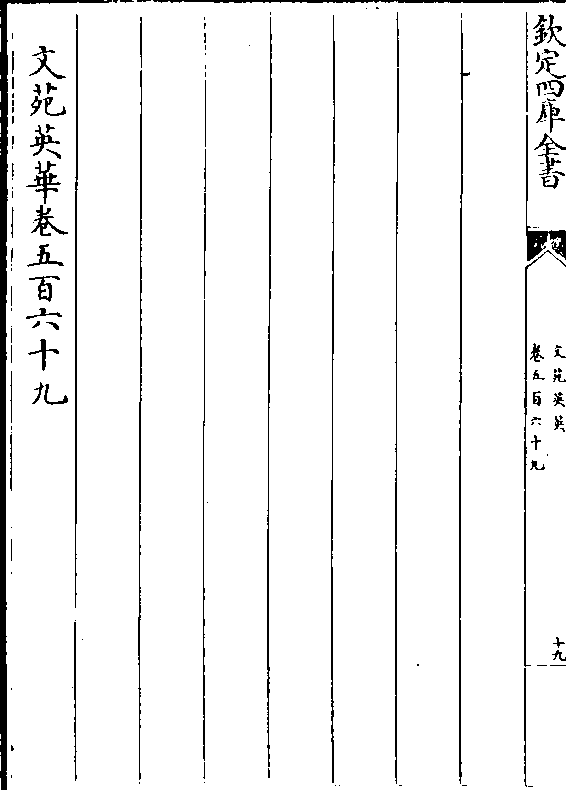 欽定四庫全書
文苑英英
卷五百六十九
十九
文苑英華卷五百六十九